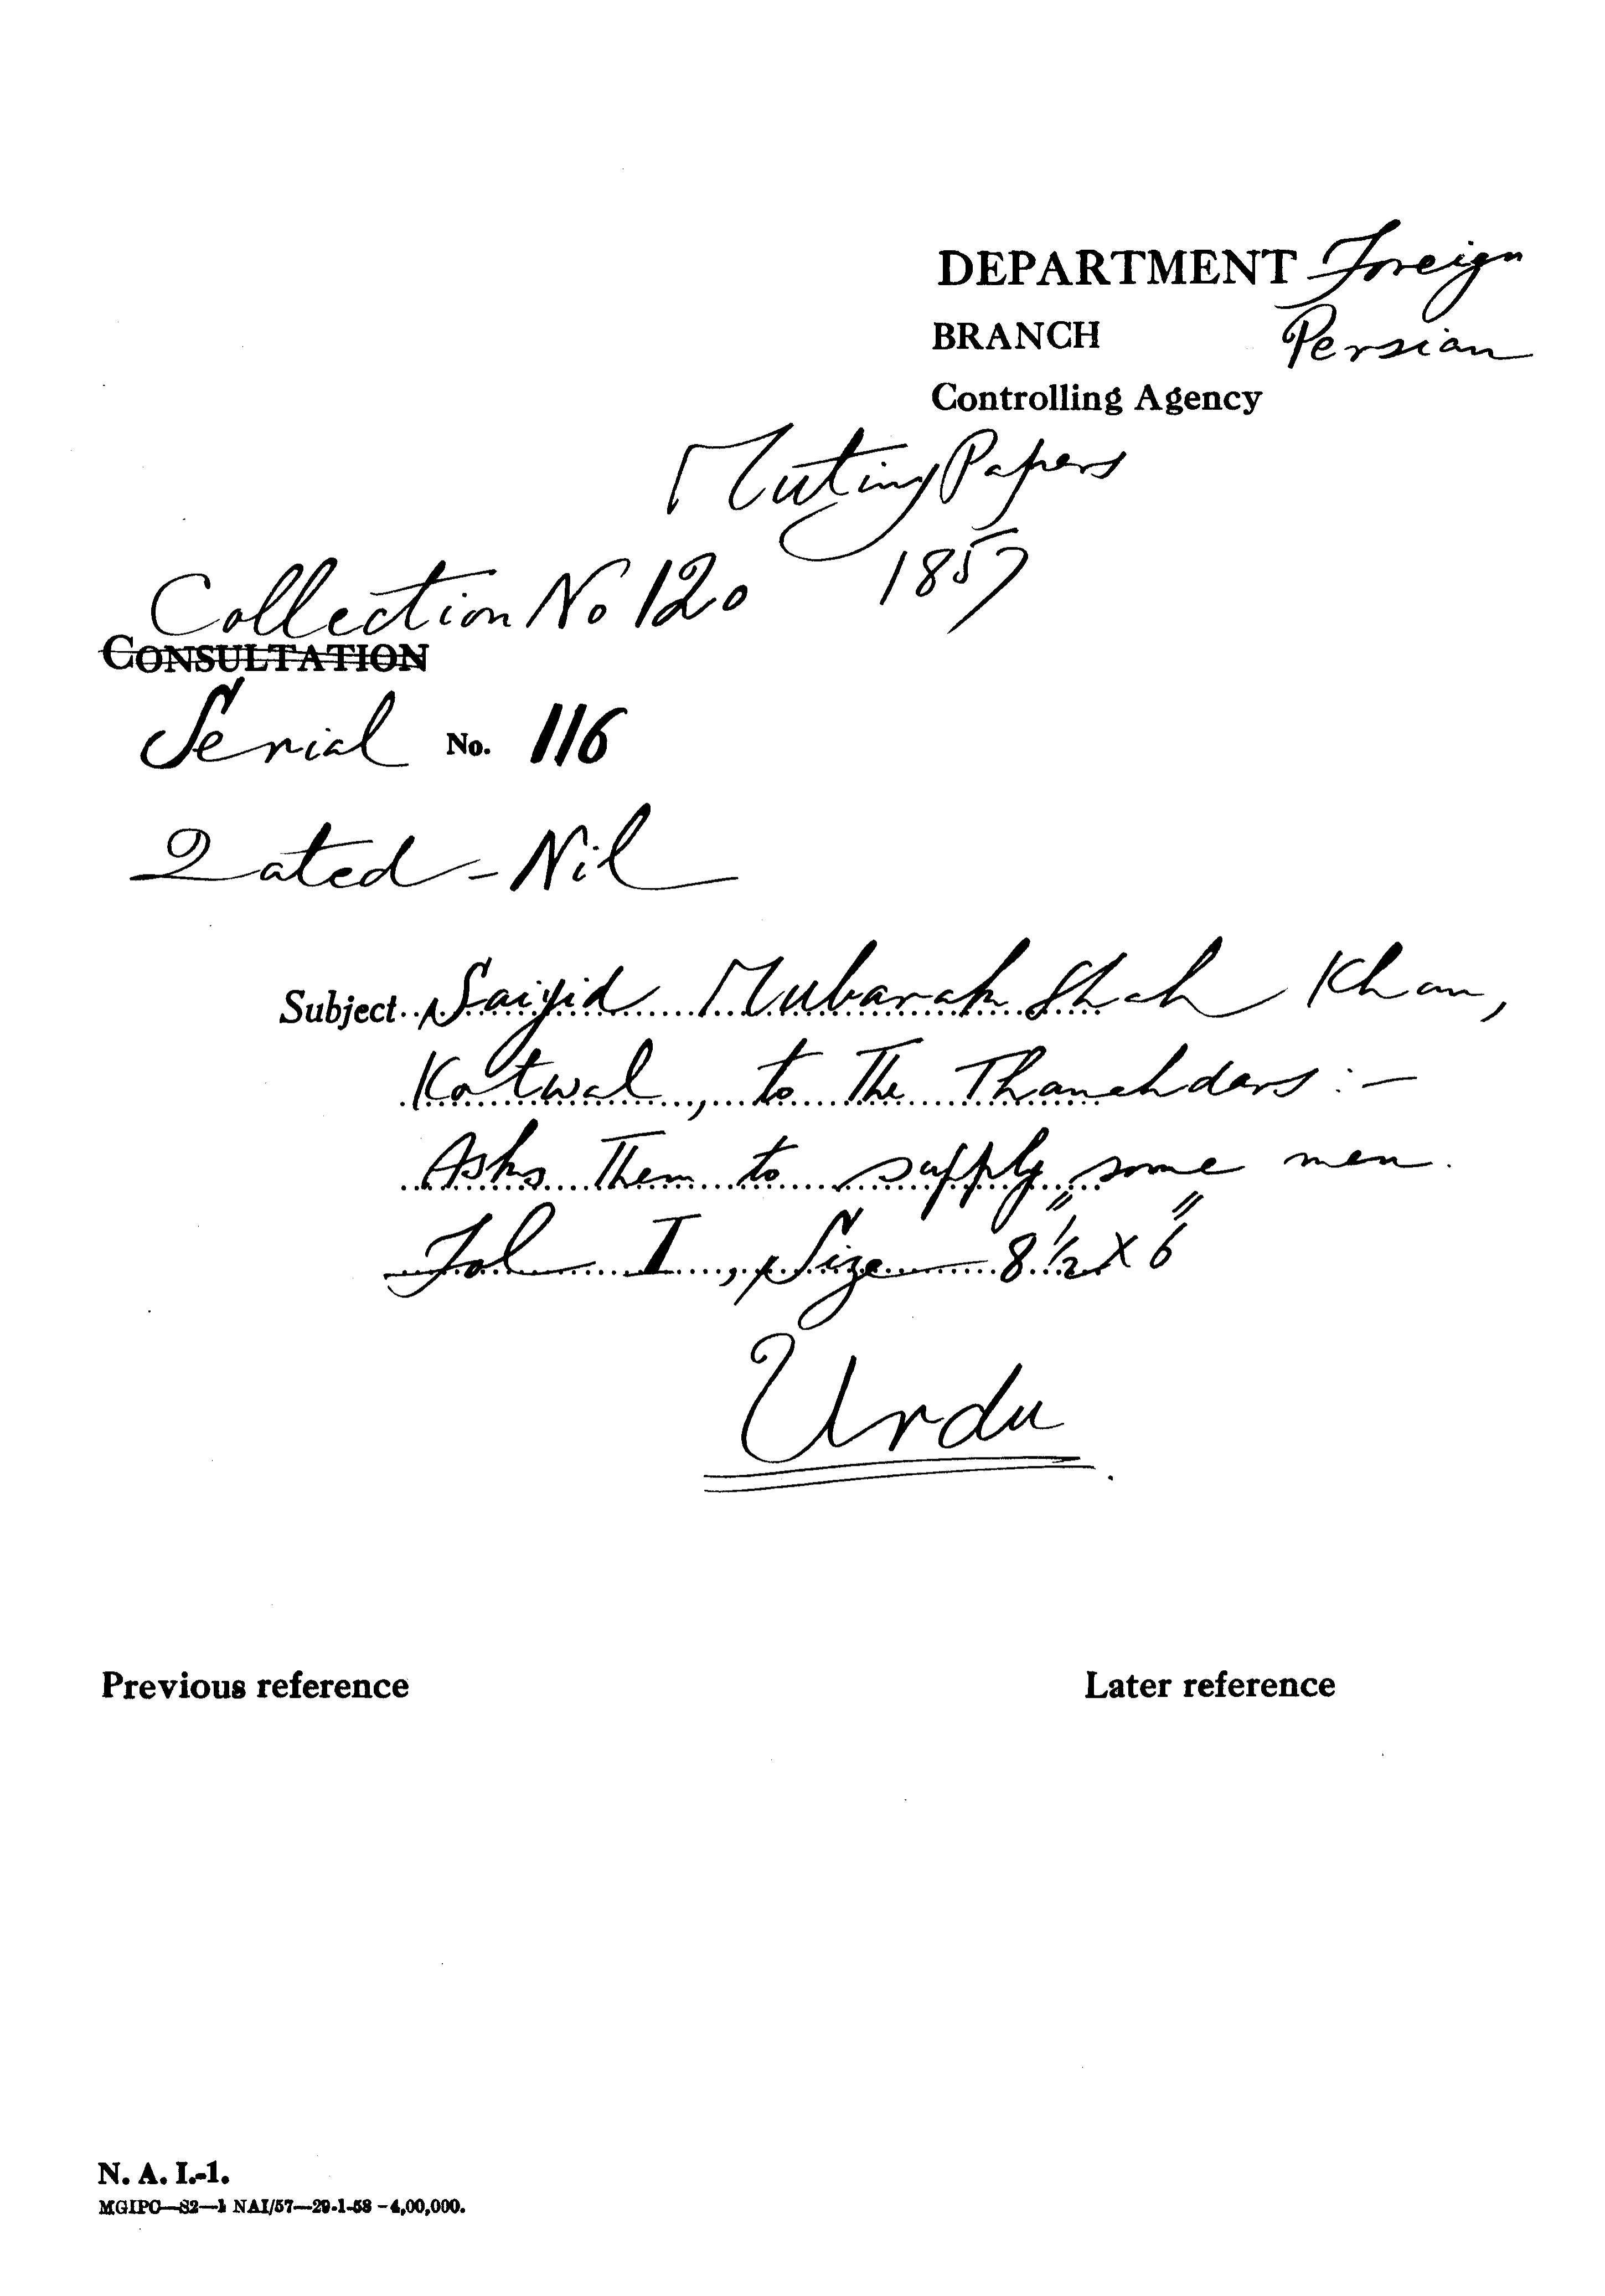 DEPARTMENT Foreign
BRANCH Persian
Controlling Agency
Mutiny Papers
1857
Collection No 120
CONSULTATION
Serial No. 116
Dated - Nil
Subject Saiyid Mubarak Shah Khan,
Kotwal, to the Thanehdars :-
Asks them to supply some men.
Fol I, Size 8½" X 6"
Urdu
Previous reference Later reference
N. A. I.-1.
MGIPC—S2—1 NAI/57—29-1-58 -4,00,000.